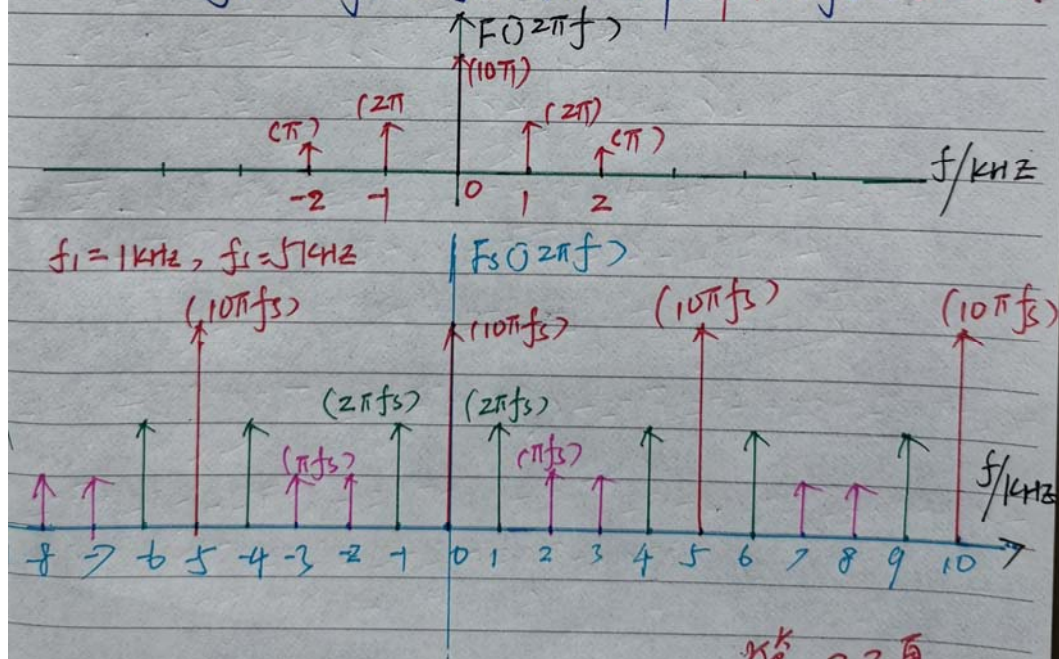 F(j2πf)
(10π)
(π) (2π (2π) (π)
-2 -1 0 1 2 f/kHz
f1=1kHz, fs=5kHz Fs(j2πf)
(10πfs) (10πfs) (10πfs) (10πfs)
(2πfs) (2πfs)
(πfs) (πfs) f/kHz
-8 -7 -6 -5 -4 -3 -2 -1 0 1 2 3 4 5 6 7 8 9 10